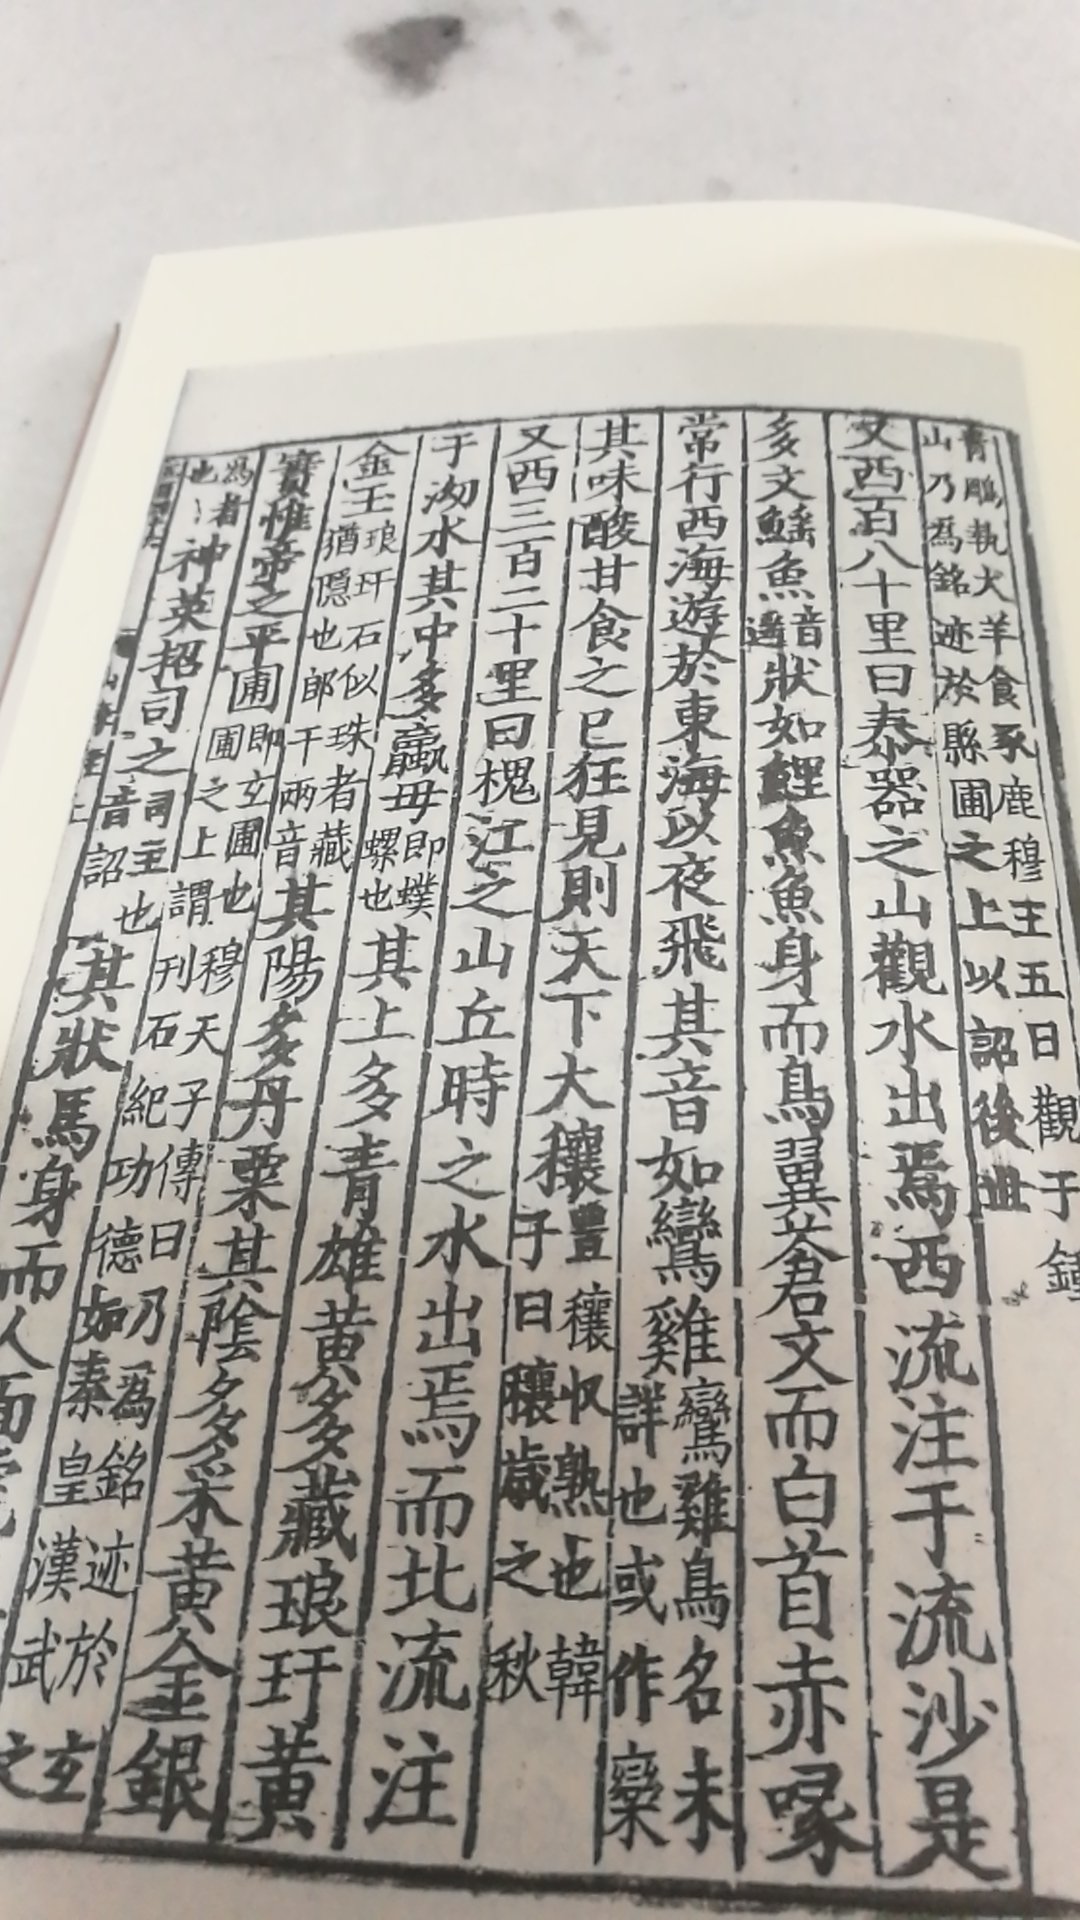 青鵰執犬羊食豕鹿穆王五日觀于鍾
山乃爲銘迹於縣圃之上以詔後世
又西百八十里曰泰器之山觀水出焉西流注于流沙是
多文鰩魚音遙狀如鯉魚魚身而鳥翼蒼文而白首赤喙
常行西海遊於東海以夜飛其音如鸞雞鸞雞鳥名未詳也或作欒
其味酸甘食之已狂見則天下大穰豐穰收熟也韓子曰穰歲之秋
又西三百二十里曰槐江之山丘時之水出焉而北流注
于泑水其中多蠃母即蟔螺也其上多青雄黃多藏琅玕黃
金玉琅玕石似珠者藏猶隱也郎干兩音其陽多丹粟其陰多采黃金銀
實惟帝之平圃即玄圃也穆天子傳曰乃爲銘迹於玄圃之上謂刊石紀功德如秦皇漢武之
爲者也神英招司之司主也音詔其狀馬身而人面